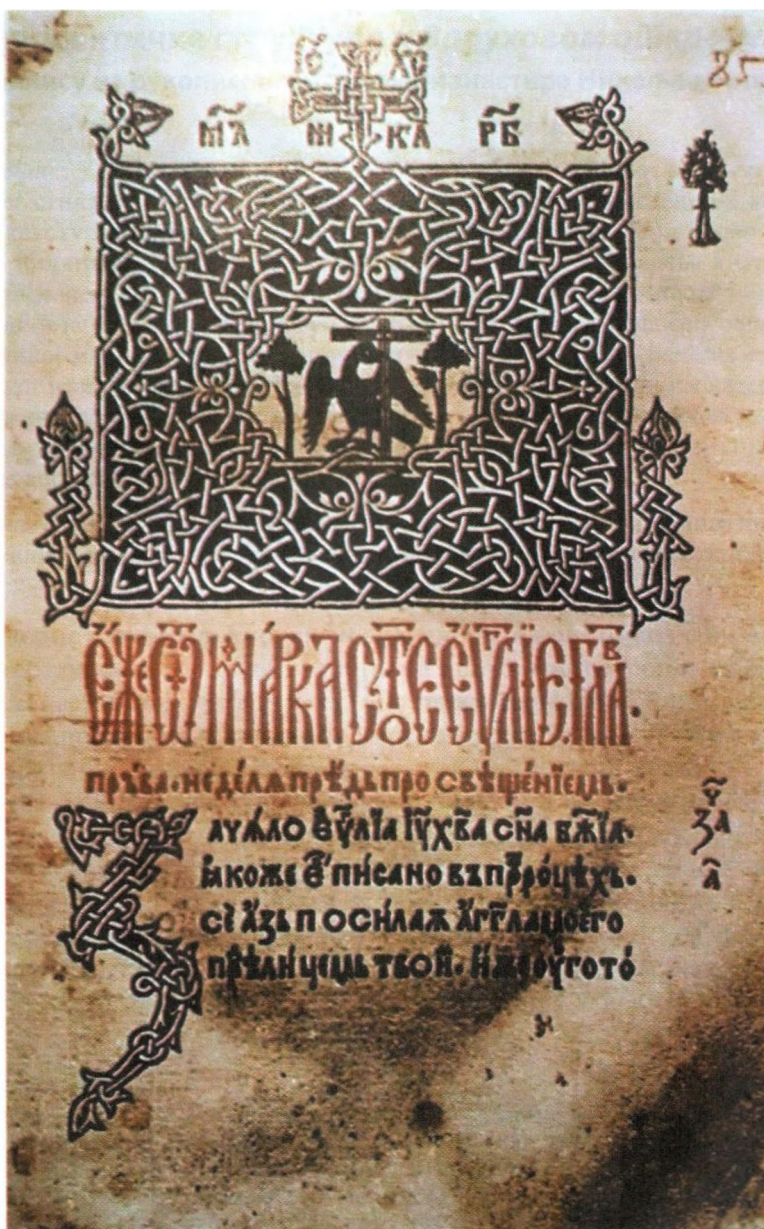 І҃С Х҃С
М҃А Н КА РБ
Е́ЖЕ Ѿ МА́РКА СТ҃ОЕ ЕѴⷢ҇ЛЇЕ. ГЛАⷡ҇.
пръва. недѣлѧ прѣдь просвѣще́нїемь.
ꙁачѧ́ло еѵⷢ҇лїа і҃ѵ х҃ва с҃на б҃жїа.
ꙗкоже е҆́ писано въ прⷪ҇ро́цѣхь.
се́ а́ꙁь посилаѫ а́гг҃ла моего
прѣ́д лицемь твои҆. и҆́же оу҆гото́